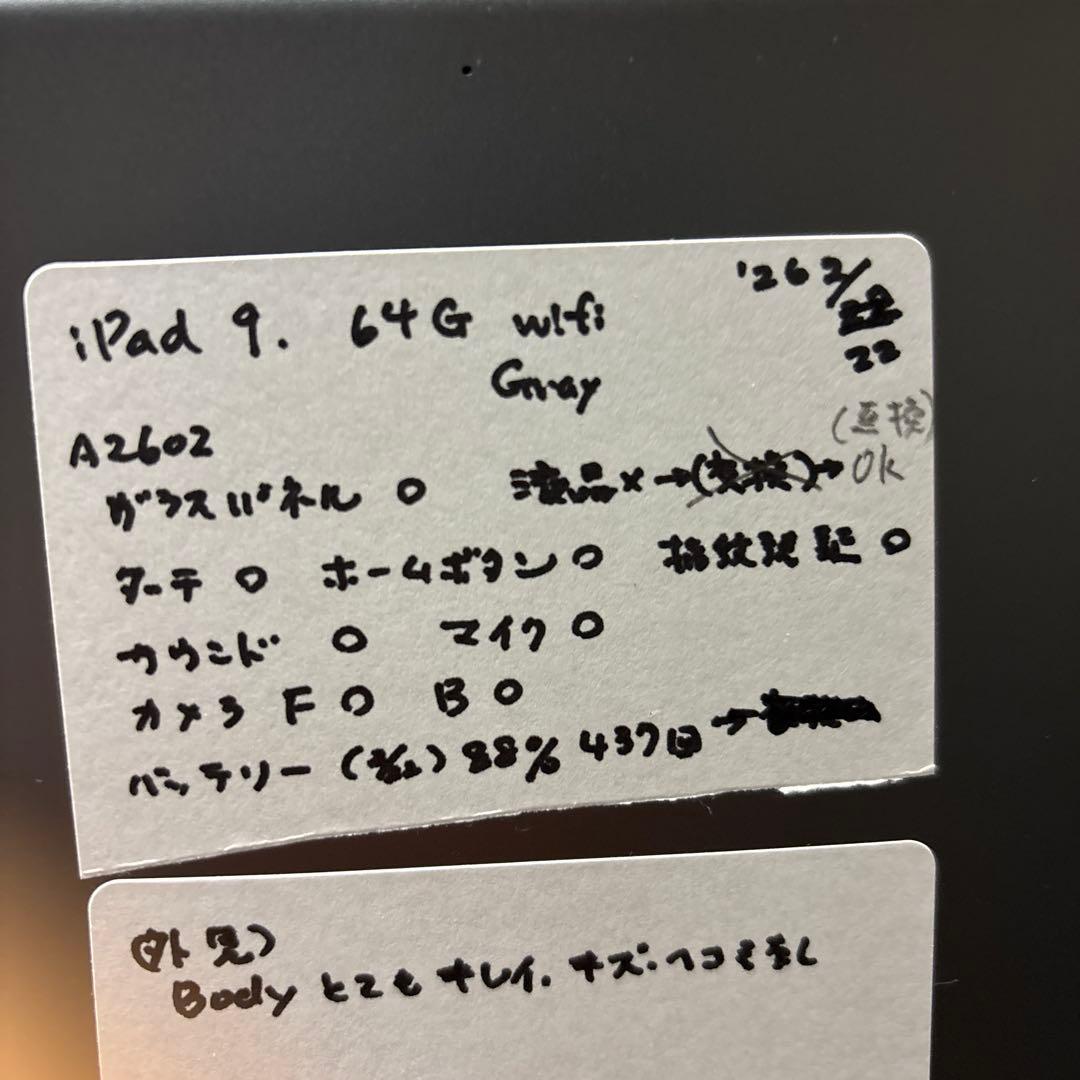 iPad 9. 64G wifi
Gray
'26 2/
22
A2602
(互換)
ガラスパネル ○ 液晶×→(交換)→ OK
タッチ ○ ホームボタン ○ 指紋認証 ○
サウンド ○ マイク ○
カメラ F ○ B ○
バッテリー ( ) 88% 437回→
(外見)
Body とてもキレイ. キズ・ヘコミ なし